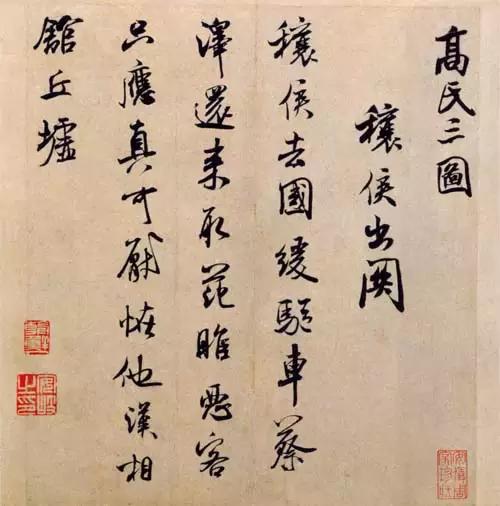 高氏三圖
穰侯出関
穰侯去國緩驅車蔡
澤還來取范睢惡客
只應真可厭恠他漢相
館丘墟